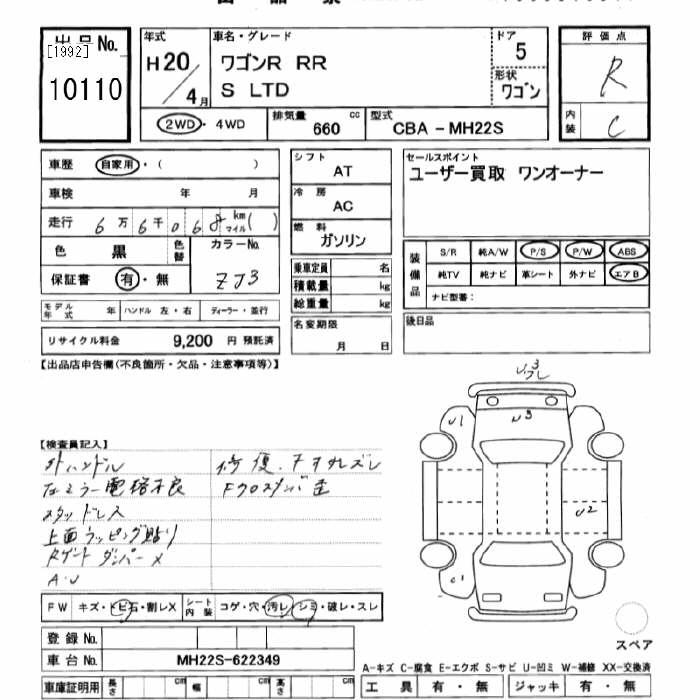 出品No.
[1992]
10110
年式
H20/4月
車名・グレード
ワゴンR RR
S LTD
ドア
5
形状
ワゴン
評価点
R
内装
C
2WD・4WD
排気量 cc
660
型式
CBA - MH22S
車歴 自家用・( )
車検 年 月
走行 6万6千068 km マイル( )
色 黒 色替
カラーNo.
ZJ3
保証書 有・無
モデル年式 年 ハンドル 左・右 ディーラー・並行
リサイクル料金 9,200 円 預託済
シフト
AT
冷房
AC
燃料
ガソリン
乗車定員 名
積載量 kg
総重量 kg
名変期限
月 日
セールスポイント
ユーザー買取 ワンオーナー
装備品
S/R 純A/W P/S P/W ABS
純TV 純ナビ 革シート 外ナビ エアB
ナビ型番:
後日品
【出品店申告欄(不良箇所・欠品・注意事項等)】
【検査員記入】
スタッドレス
上面ラッピング貼り
Rゲートダンパー×
A・U
U3
U1
U3
U2
C1
FW キズ・トビ石・割レX シート内装 コゲ・穴・汚レ・シミ・破レ・スレ
登録No.
車台No. MH22S-622349
車庫証明用 長さ cm 幅 cm 高さ cm
スペア
A-キズ C-腐食 E-エクボ S-サビ U-凹ミ W-補修 XX-交換済
工具 有・無 ジャッキ 有・無